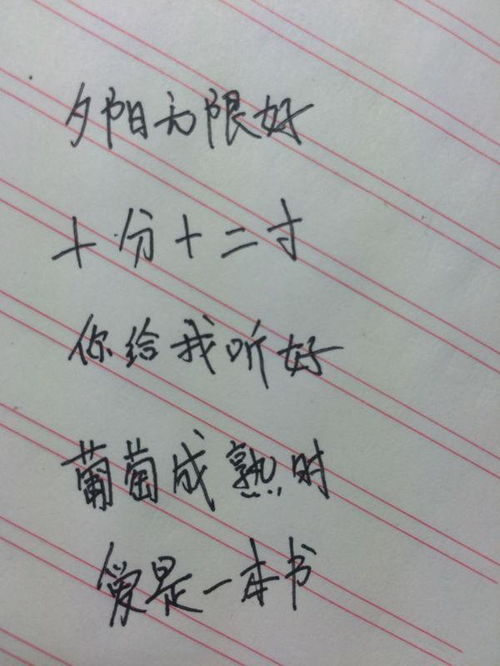 夕阳无限好
十分十二寸
你给我听好
葡萄成熟时
爱是一本书